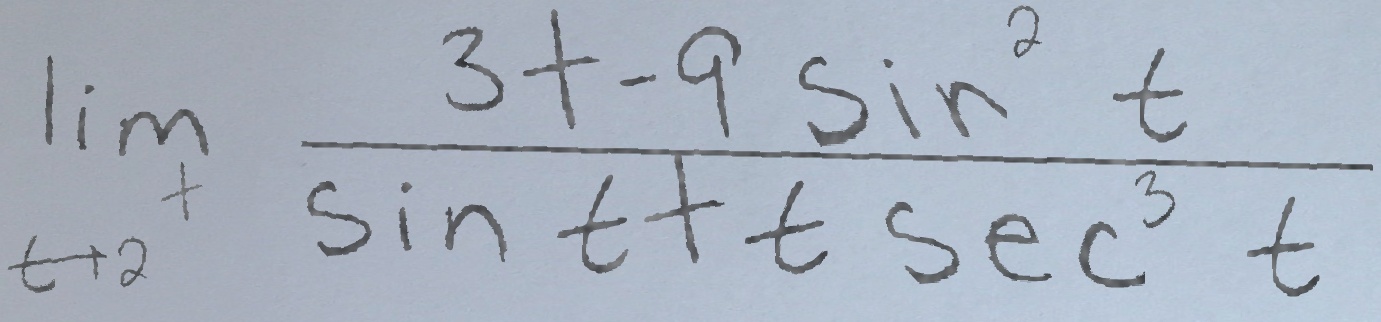 \lim_{t \to 2^+} \frac{3t - 9 \sin^2 t}{\sin t + t \sec^3 t}